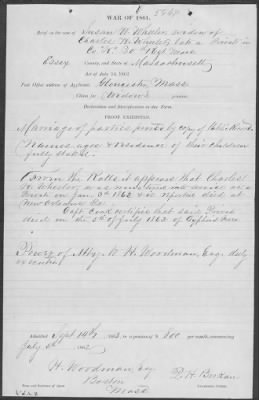 WAR OF 1861.
Brief in the case of Susan W. Wheeler, widow of
Charles H. Wheeler late a Private in
Co "K" 30th Regt Mass
Essex County, and State of Massachusetts
Act of July 14, 1862
Post Office address of Applicant: Gloucester Mass
Claim for Widow's pension.
Declaration and Identification in due Form.
PROOF EXHIBITED.
Marriage of parties proved by copy of Public Record.
Names, ages & residence of their children
fully stated.
From the Rolls it appears that Charles
H. Wheeler, was mustered into service as a
Private on Jany 1862 & is reported died at
New Orleans La.
Capt Cook certifies that said Private
died on the 5th of July 1862 of Typhus Fever
Power of Atty. W. H. Woodman, Esq. duly
executed
Admitted Sept 14th, 1863, to a pension of $ 8.00 per month, commencing
July 5th 1862.
H. Woodman, Esq
Boston
Mass